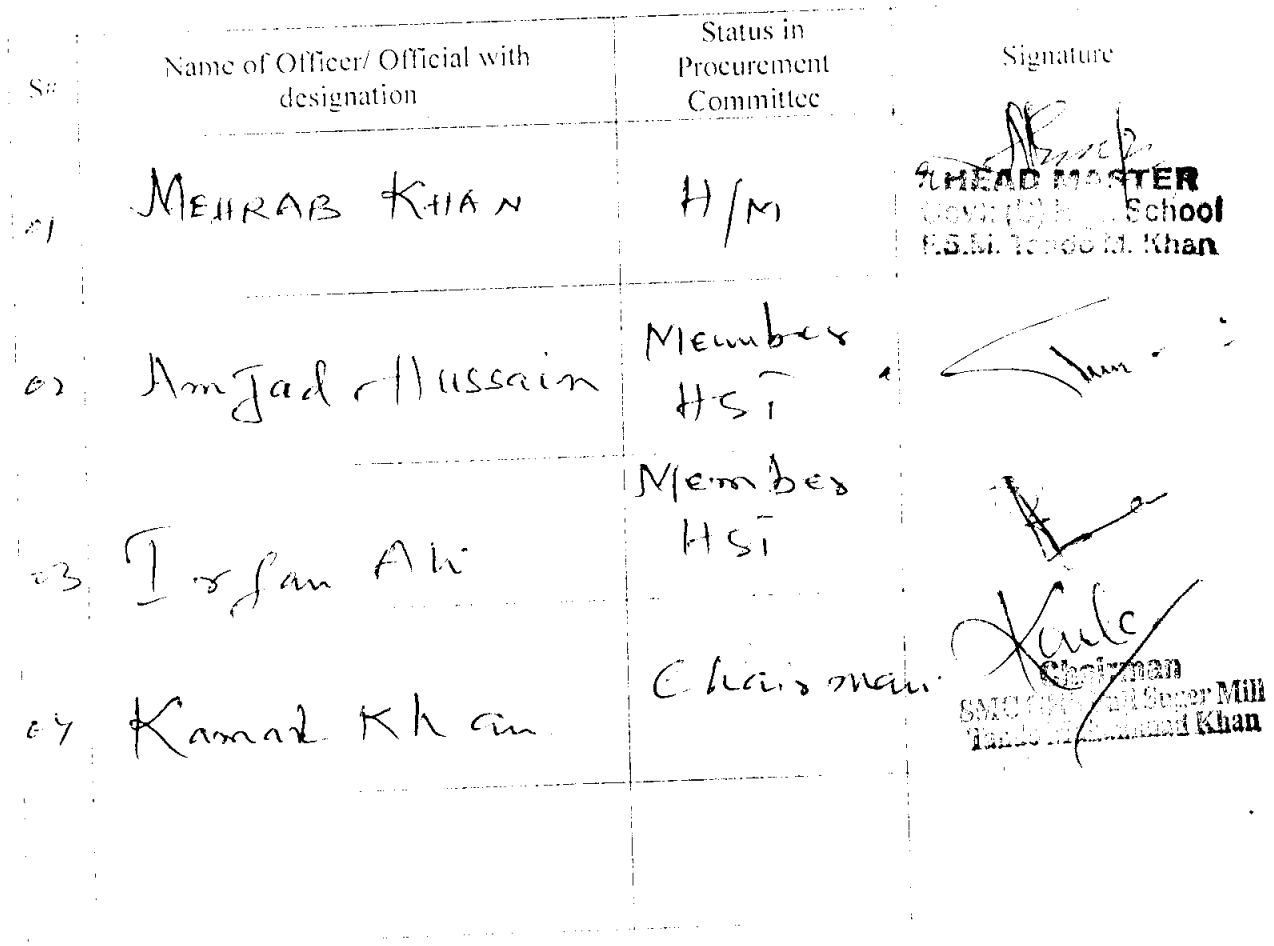 S#
Name of Officer/ Official with
designation
Status in
Procurement
Committee
Signature
01
MEHRAB KHAN
H/M
HEAD MASTER
School
Khan
02
Amjad Hussain
Member
HST
03
Irfan Ali
Member
HST
04
Khan
Chairman
Chairman
SMC Mill
Khan